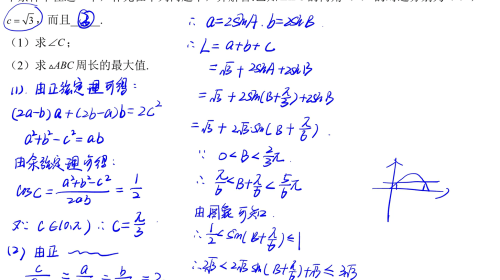 c=√3, 而且 ② .
(1) 求∠C;
(2) 求△ABC 周长的最大值.
(1). 由正弦定理可得:
(2a-b)a+(2b-a)b=2c²
a²+b²-c²=ab
由余弦定理可得:
cosC = (a²+b²-c²)/(2ab) = 1/2
又∵ C∈(0,π) ∴ C=π/3
(2) 由正
∴ a=2sinA. b=2sinB
∴ L=a+b+c
=√3+2sinA+2sinB
=√3+2sin(B+π/3)+2sinB
=√3+2√3sin(B+π/6)
∵ 0<B<2/3π
∴ π/6<B+π/6<5/6π
由图象可知
∴ 1/2<sin(B+π/6)≤1
∴ 2√3<2√3sin(B+π/6)+√3≤3√3